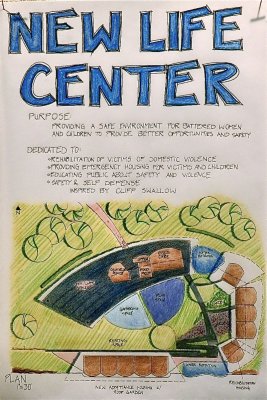 NEW LIFE
CENTER
PURPOSE
PROVIDING A SAFE ENVIRONMENT FOR BATTERED WOMEN
AND CHILDREN TO PROVIDE BETTER OPPORTUNITIES AND SAFETY
DEDICATED TO:
REHABILITATION OF VICTIMS OF DOMESTIC VIOLENCE
PROVIDING EMERGENCY HOUSING FOR VICTIMS AND CHILDREN
EDUCATING PUBLIC ABOUT SAFETY AND VIOLENCE
SAFETY & SELF DEFENSE
INSPIRED BY CLIFF SWALLOW
PLAN
NEW ADMITTANCE HOUSING W/
ROOF GARDEN
REHABILITATION
HOUSING